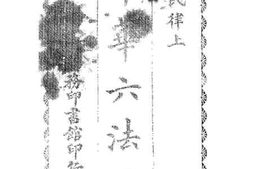 民律上
中華六法
務印書館印行